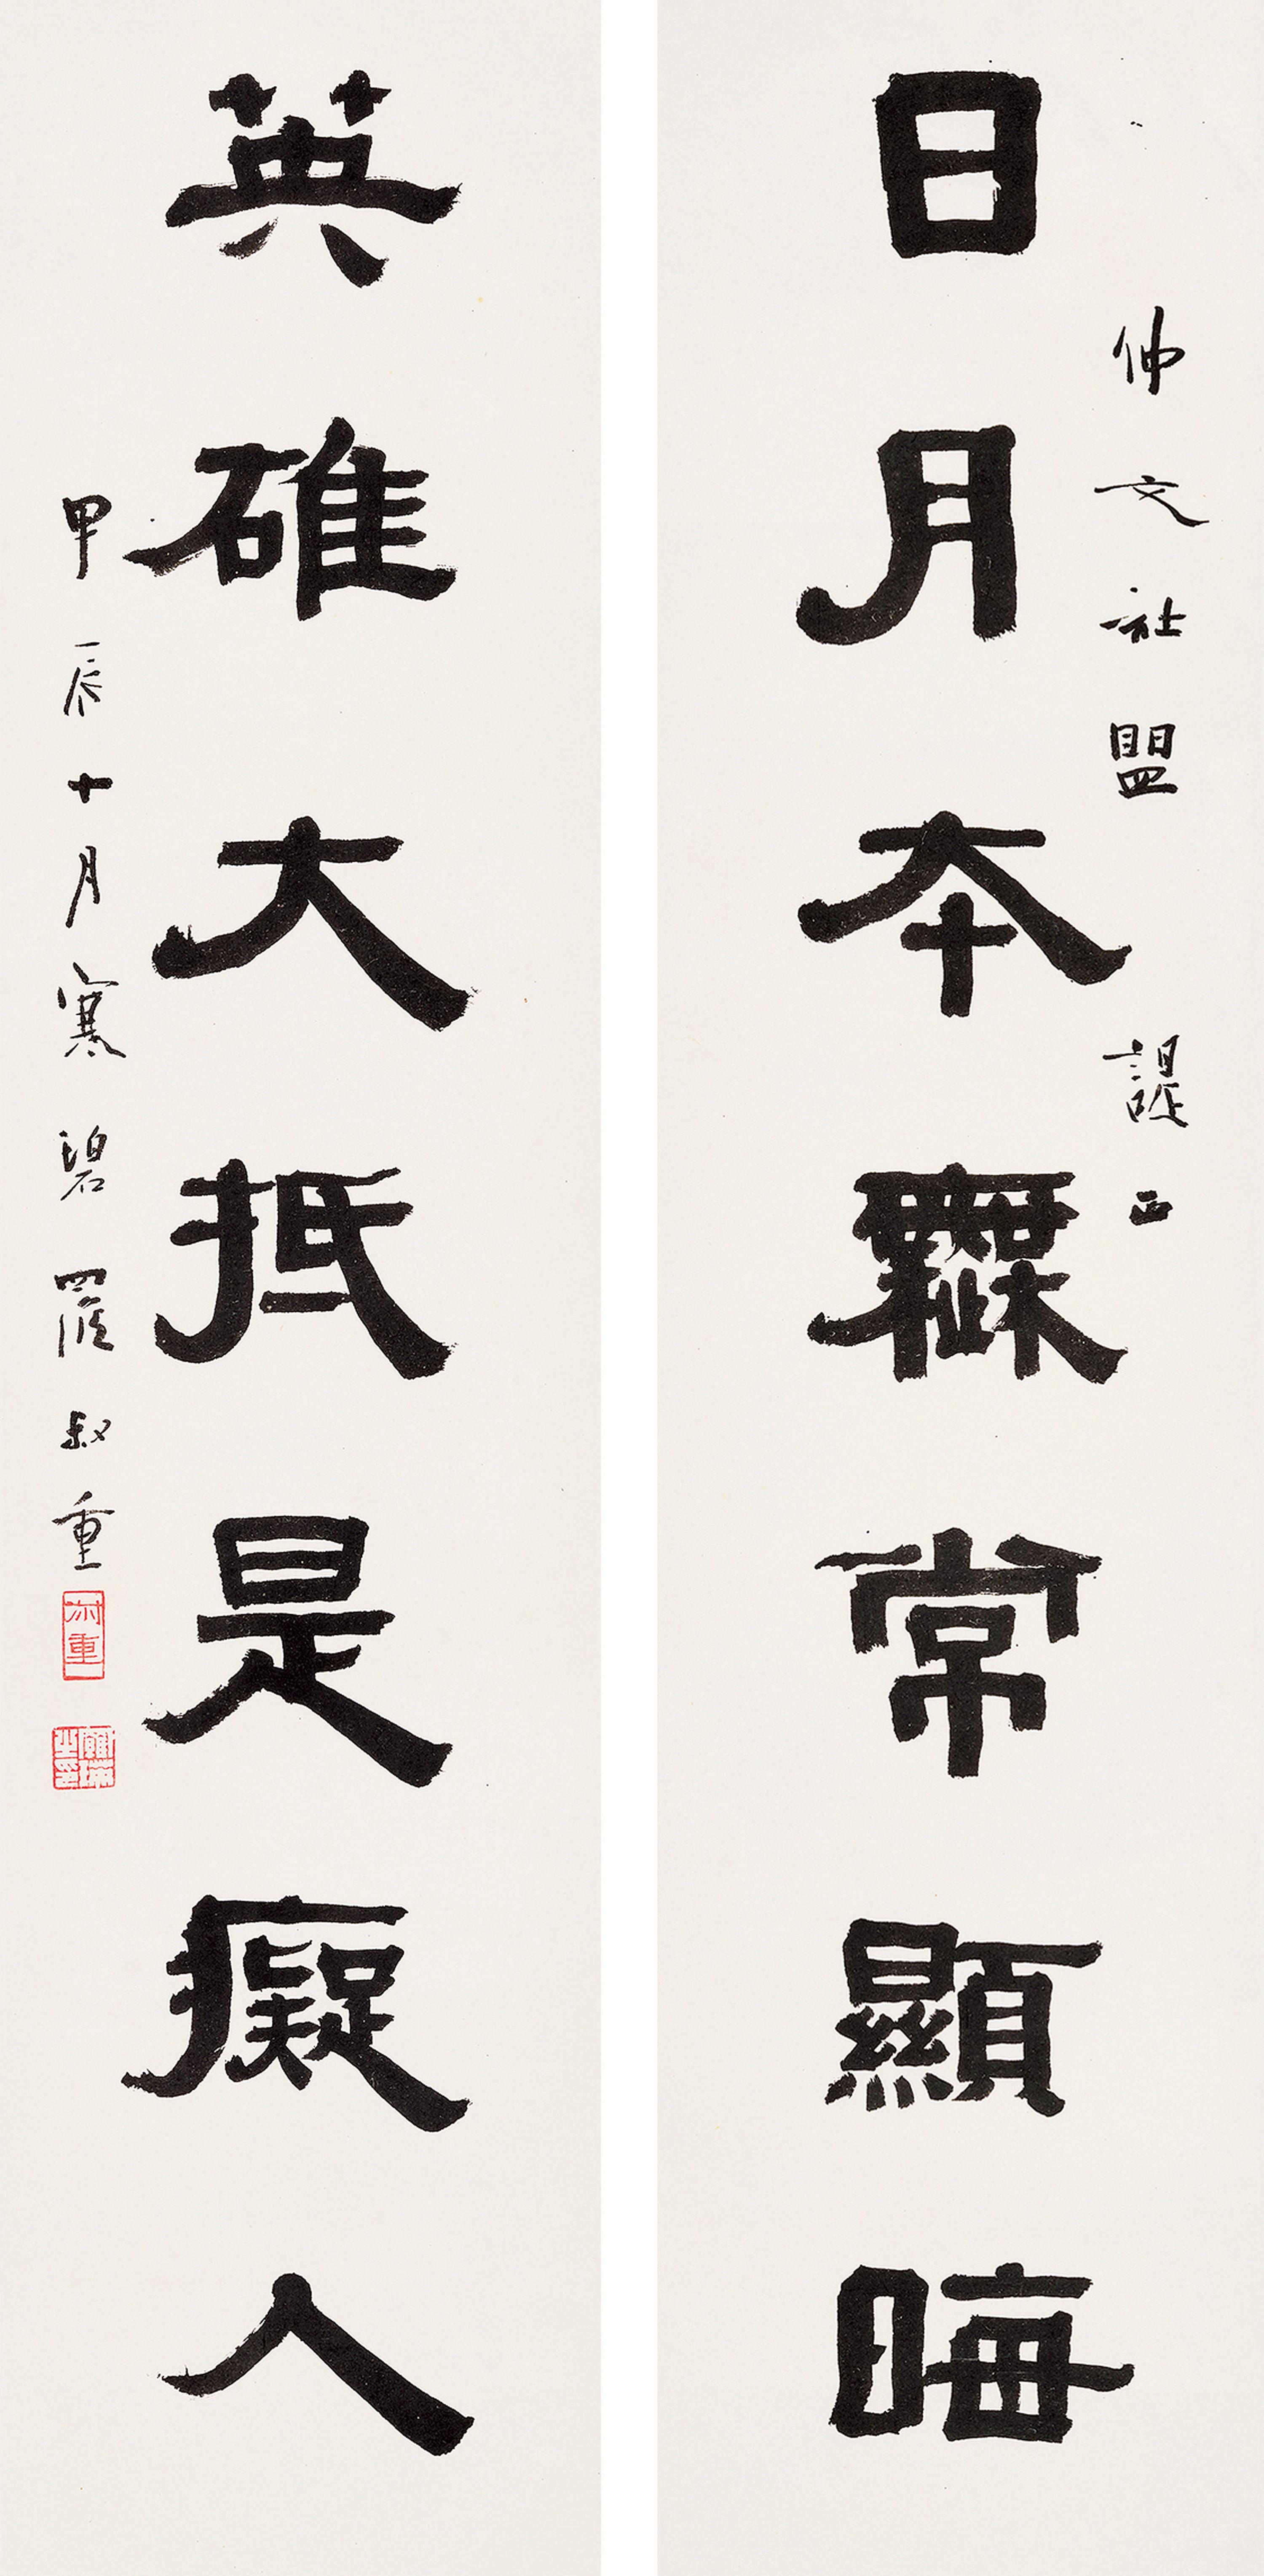 仲文社盟 諟正
日月本無常顯晦
英雄大抵是癡人
甲辰十月寒碧羅叔重
叔重
羅瑛之印